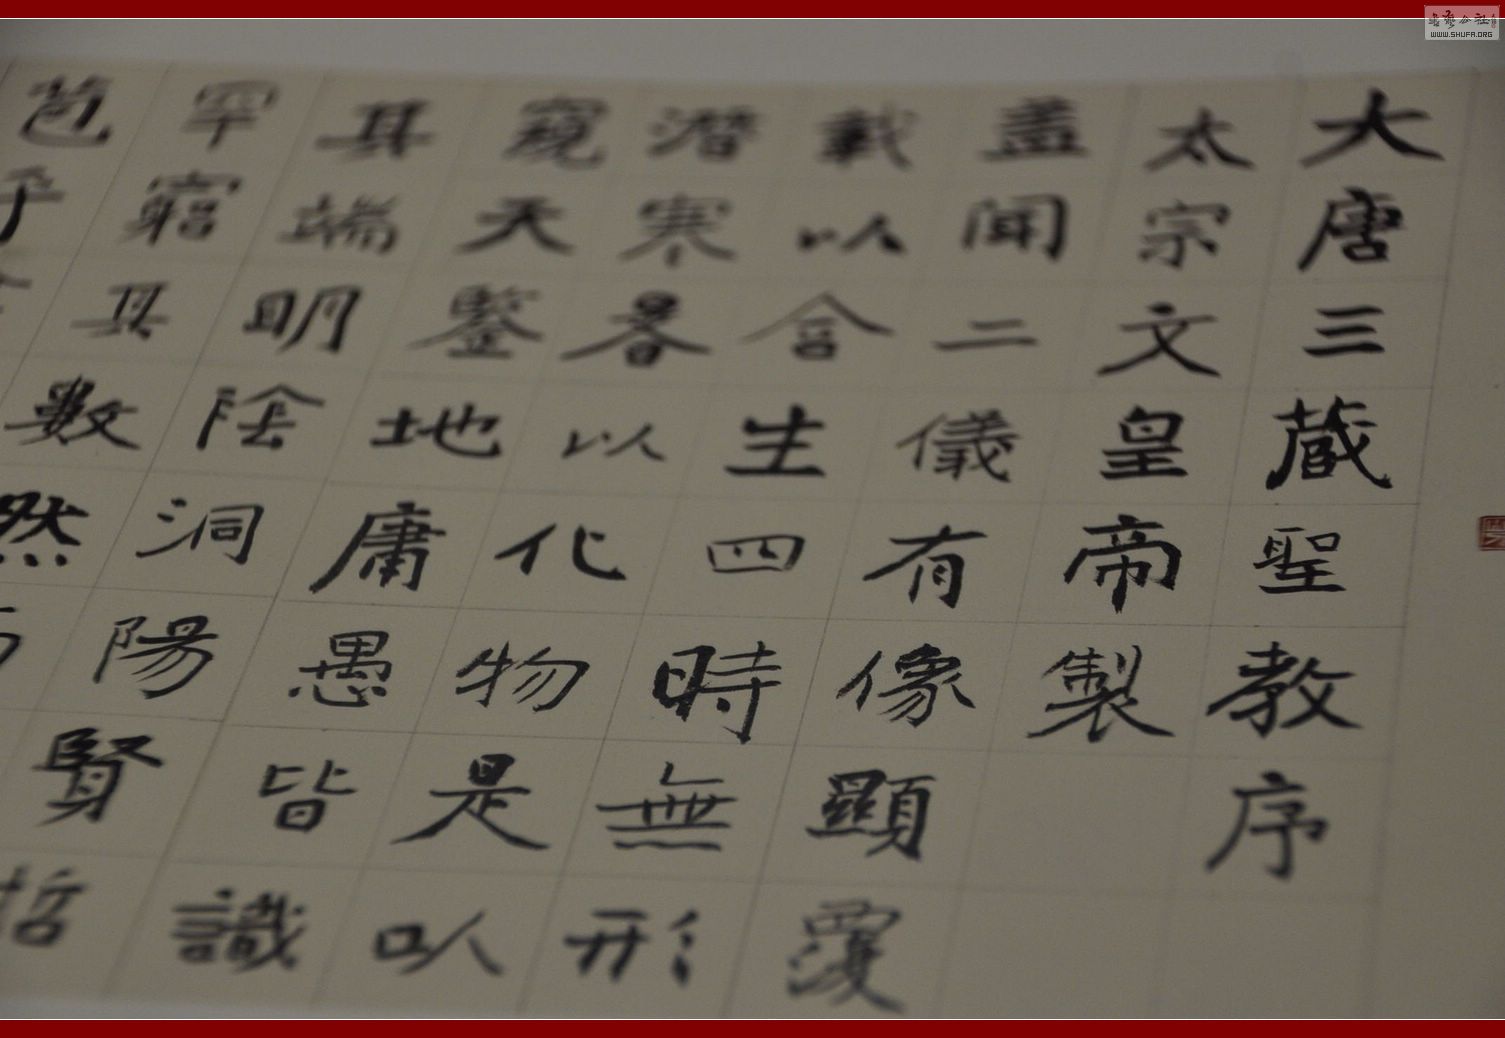 大唐三蔵聖教序
太宗文皇帝製
蓋聞二儀有像顯覆
載以含生四時無形
潛寒暑以化物是以
窺天鑒地庸愚皆識
其端明陰洞陽賢哲
罕窮其數然
苞乎
WWW.SHUFA.ORG